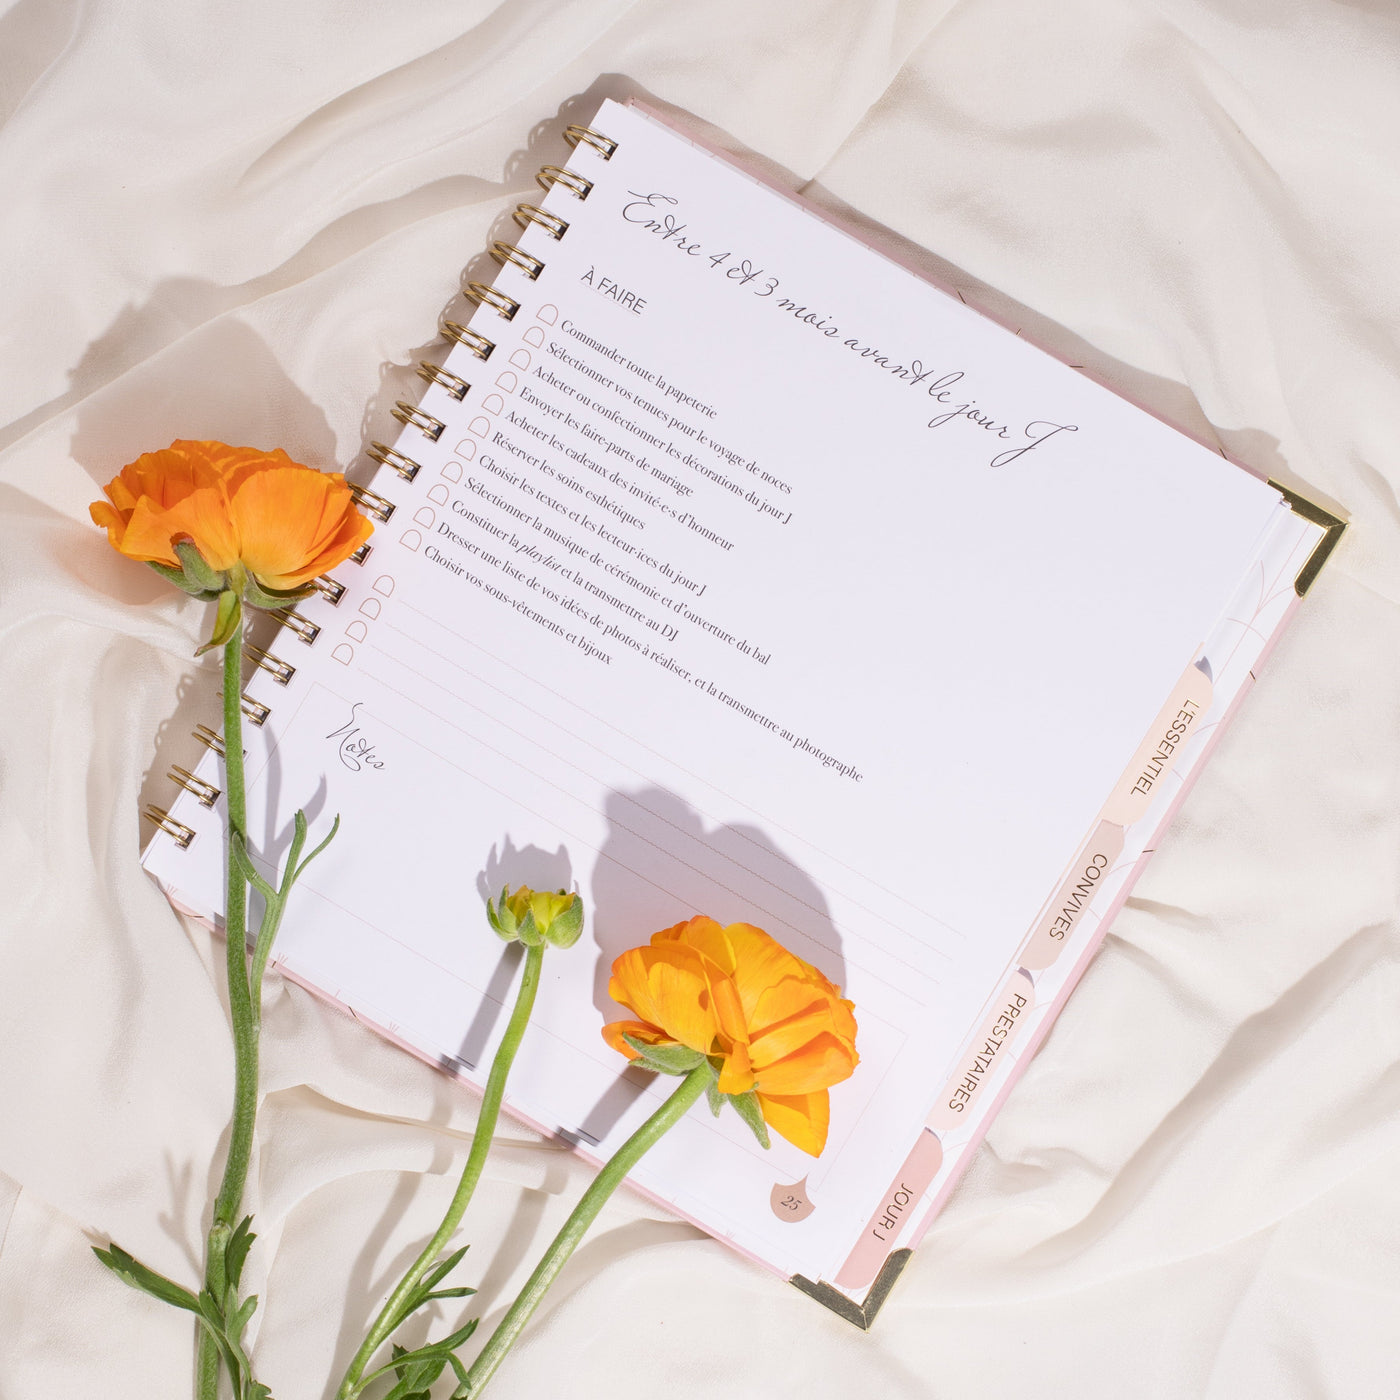 Entre 4 et 3 mois avant le jour J
À FAIRE
Commander toute la papeterie
Sélectionner vos tenues pour le voyage de noces
Acheter ou confectionner les décorations du jour J
Envoyer les faire-parts de mariage
Acheter les cadeaux des invité·e·s d'honneur
Réserver les soins esthétiques
Choisir les textes et les lecteur·ices du jour J
Sélectionner la musique de cérémonie et d'ouverture du bal
Constituer la playlist et la transmettre au DJ
Dresser une liste de vos idées de photos à réaliser, et la transmettre au photographe
Choisir vos sous-vêtements et bijoux
Notes
25
L'ESSENTIEL
CONVIVES
PRESTATAIRES
JOUR J